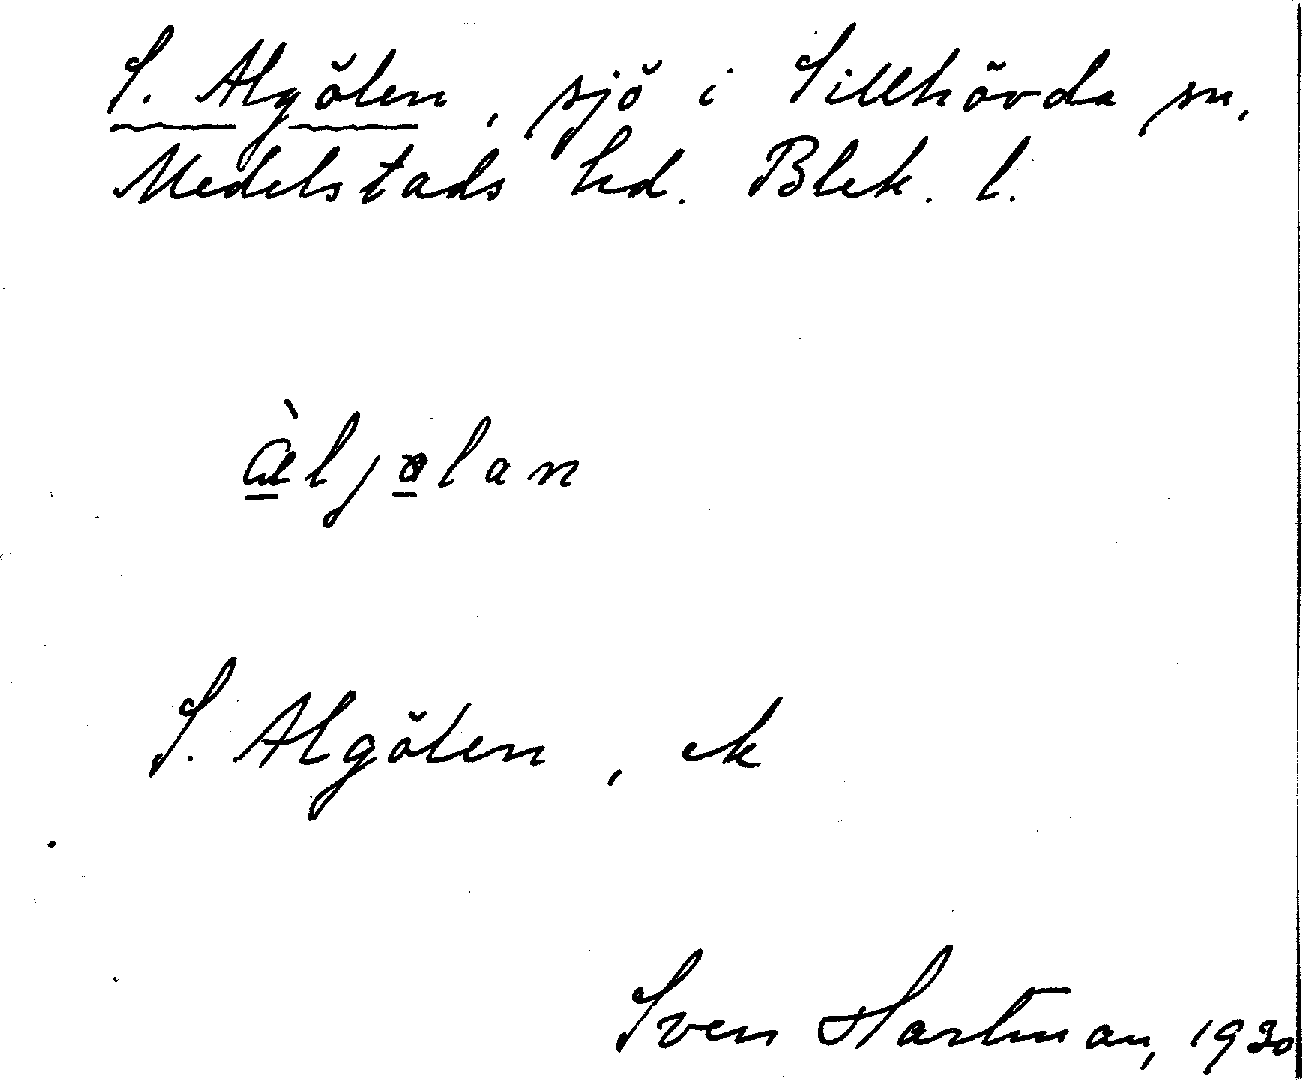 S. Algölen, sjö i Sillhövda sn,
Medelstads hd. Blek. l.
æ̀ljølan
S. Algölen, ek
Sven Hartman, 1930